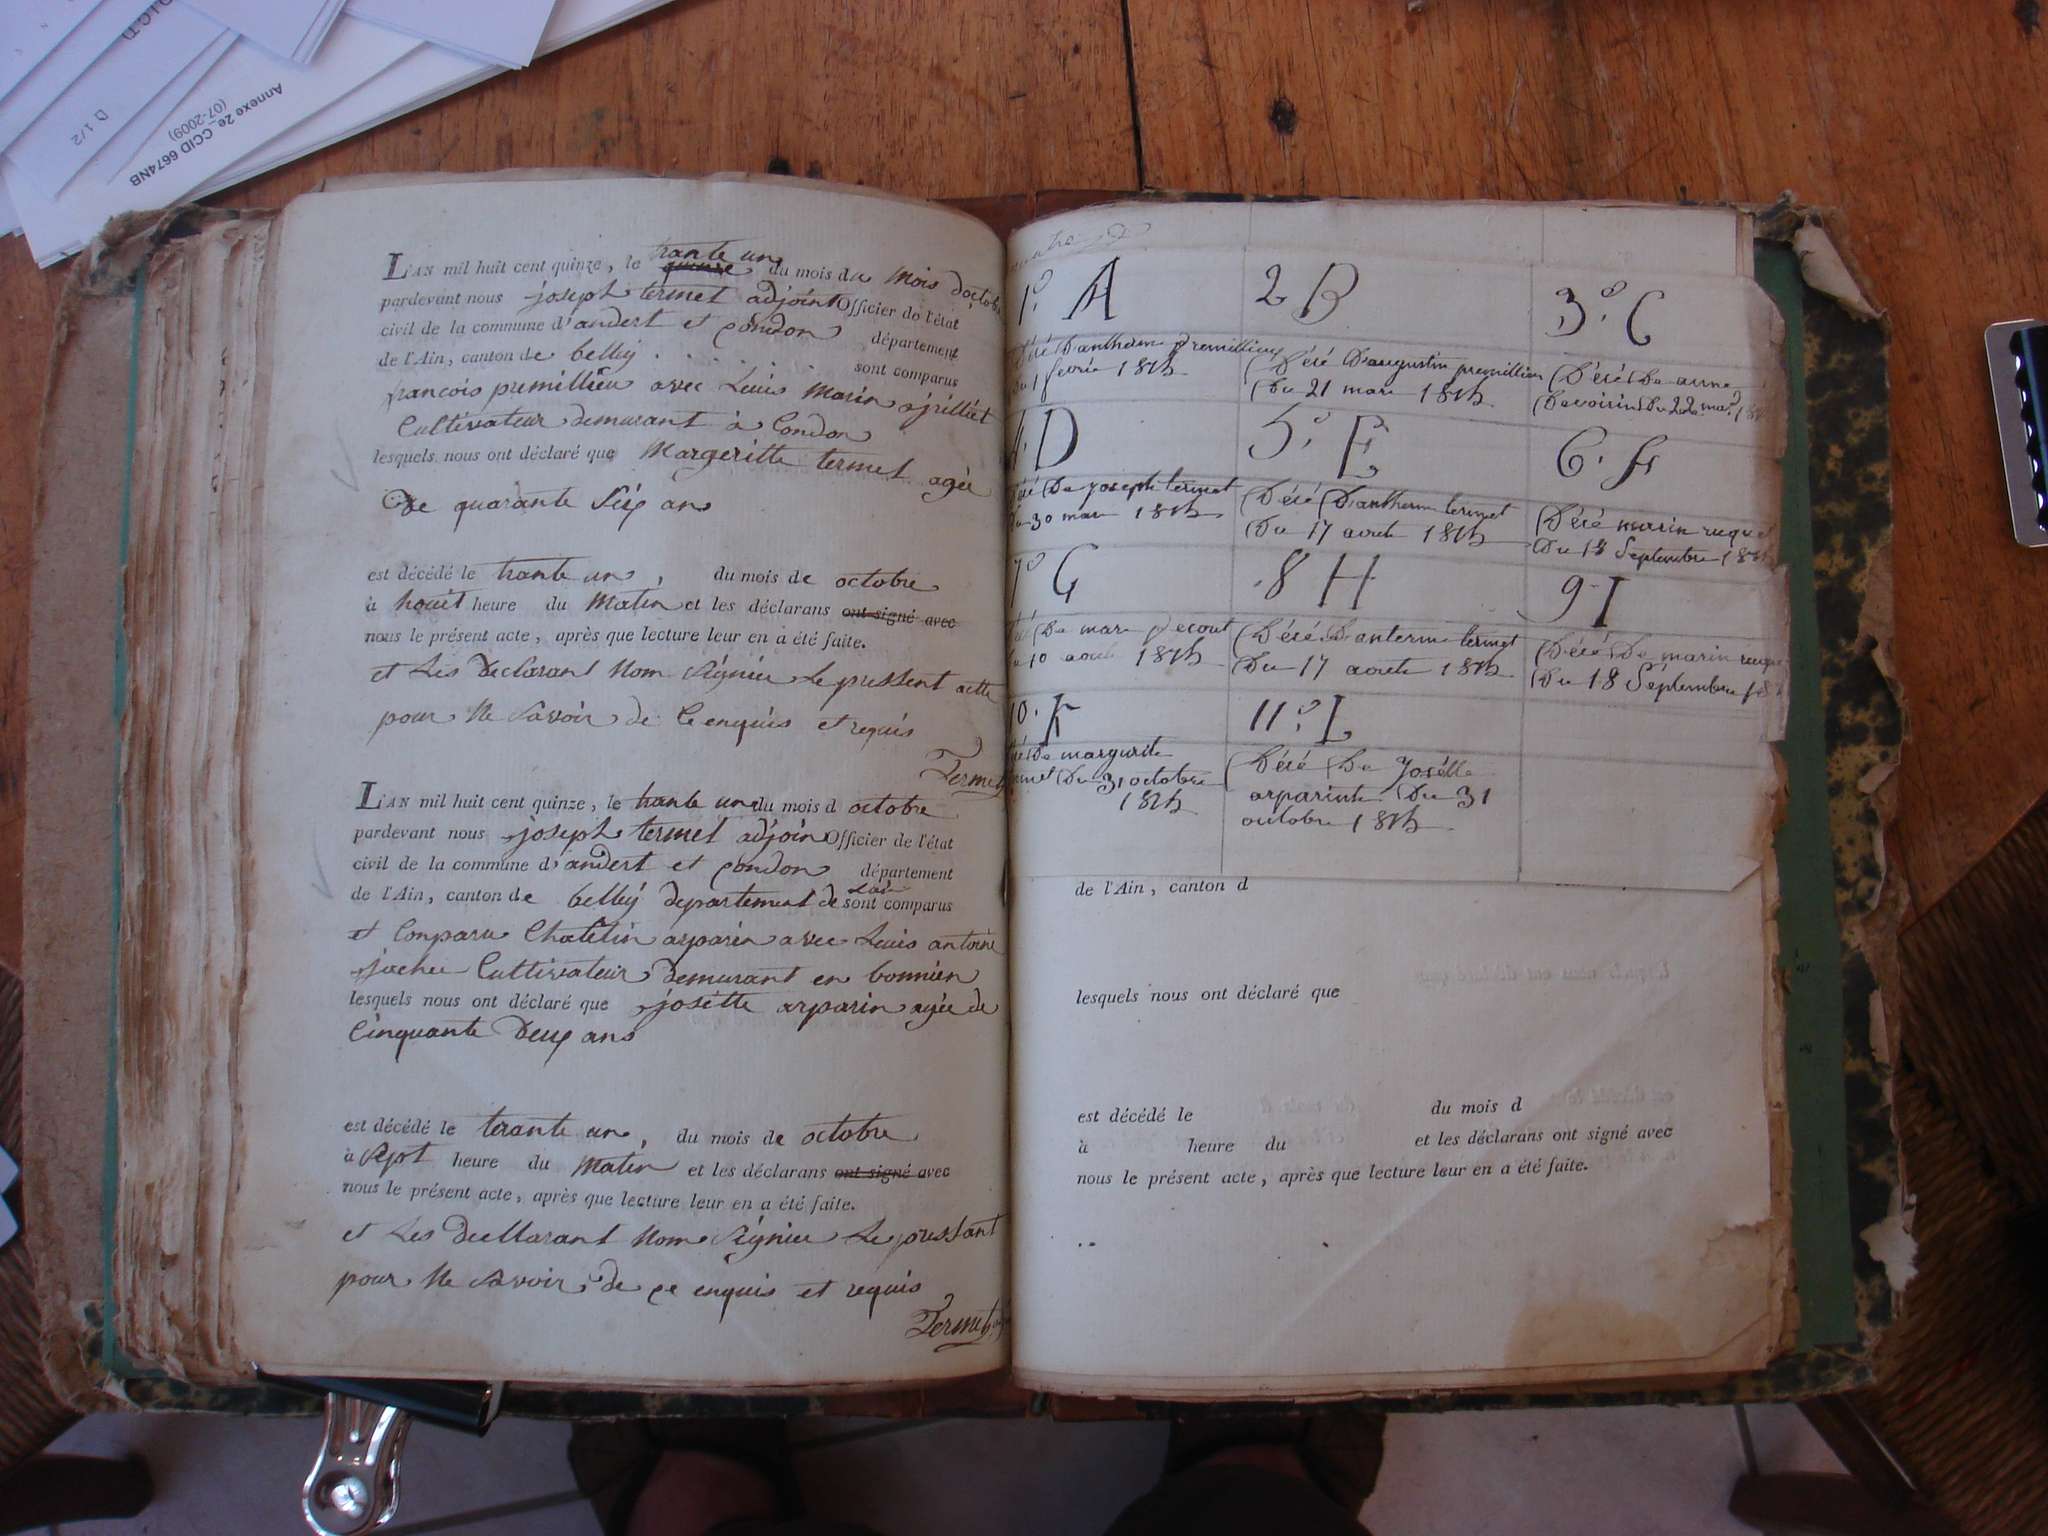 Annexe 2e_CCID 6674NB
(07-2009)
D 1/2
L'AN mil huit cent quinze, le quinze trante un du mois du mois d'octobre
pardevant nous joseph termet adjoint Officier de l'état
civil de la commune d'andert et condon département
de l'Ain, canton de belley . . . . . sont comparus
françois premillieu avec Louis Marin
Cultivateur demurant à Condon
lesquels nous ont déclaré que Margeritte termet agée
De quarante Six ans
est décédé le trante un, du mois de octobre
à houit heure du Matin et les déclarans ont signé avec
nous le présent acte, après que lecture leur en a été faite.
et Les Declarant Nom Signiée Le pressent actte
pour Ne Savoir de Ce enquis et requis
Termet
L'AN mil huit cent quinze, le trante un du mois d octobre
pardevant nous joseph termet adjoin Officier de l'état
civil de la commune d'andert et condon département
de l'Ain, canton de belley departement de lain sont comparus
et Comparu Chatelin arparin avec Louis antoine
Cultivateur demurant en bonnien
lesquels nous ont déclaré que josette arparin agée de
Cinquante Deux ans
est décédé le terante un, du mois de octobre
à Sept heure du Matin et les déclarans ont signé avec
nous le présent acte, après que lecture leur en a été faite.
et Les Decllarant Nom Signiee Le pressant
pour Ne Savoir de ce enquis et requis
Termet
1° A
2 B
3° C
Dantherm premillieu
du 1 fevrié 1815
Décé Daugustin premillieu
Du 21 mars 1815
Décé De anne
Devoisin Du 22 mars
4. D
5° E
6.
De joseph termet
Du 30 mars 1815
Décé Dantherm termet
Du 17 aoute 1815
Décé marin ruquet
Du 18 Septembre 1815
7° G
8 H
9 I
De marc
10 aout 1815
Décé Danterme termet
Du 17 aoute 1815
Décé De marin
Du 18 Séptembre
10. K
11° L
De margurite
Du 31 octobre
1815
Décé De Josette
arparinte Du 31
octobre 1815
de l'Ain, canton d
lesquels nous ont déclaré que
est décédé le du mois d
à heure du et les déclarans ont signé avec
nous le présent acte, après que lecture leur en a été faite.